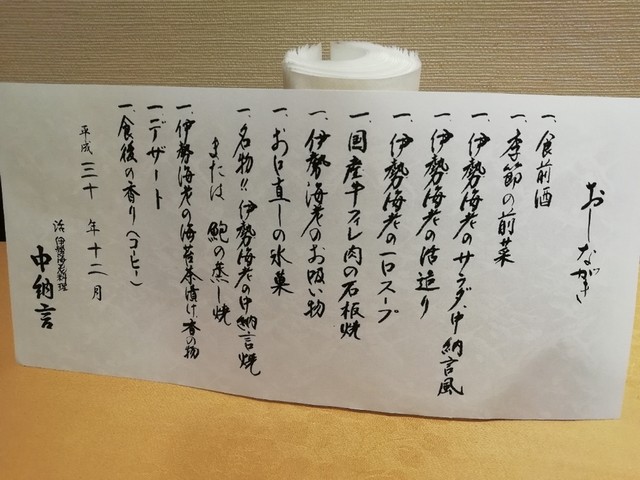 おしながき
一、食前酒
一、季節の前菜
一、伊勢海老のサラダ、中納言風
一、伊勢海老の活造り
一、伊勢海老の一口スープ
一、国産牛フィレ肉の石板焼
一、伊勢海老のお吸い物
一、お口直しの氷菓
一、名物!!伊勢海老の中納言焼
または 鮑の蒸し焼
一、伊勢海老の海苔茶漬け、香の物
一、デザート
一、食後の香り(コーヒー)
平成 三十 年 十二 月
活 伊勢海老料理
中納言